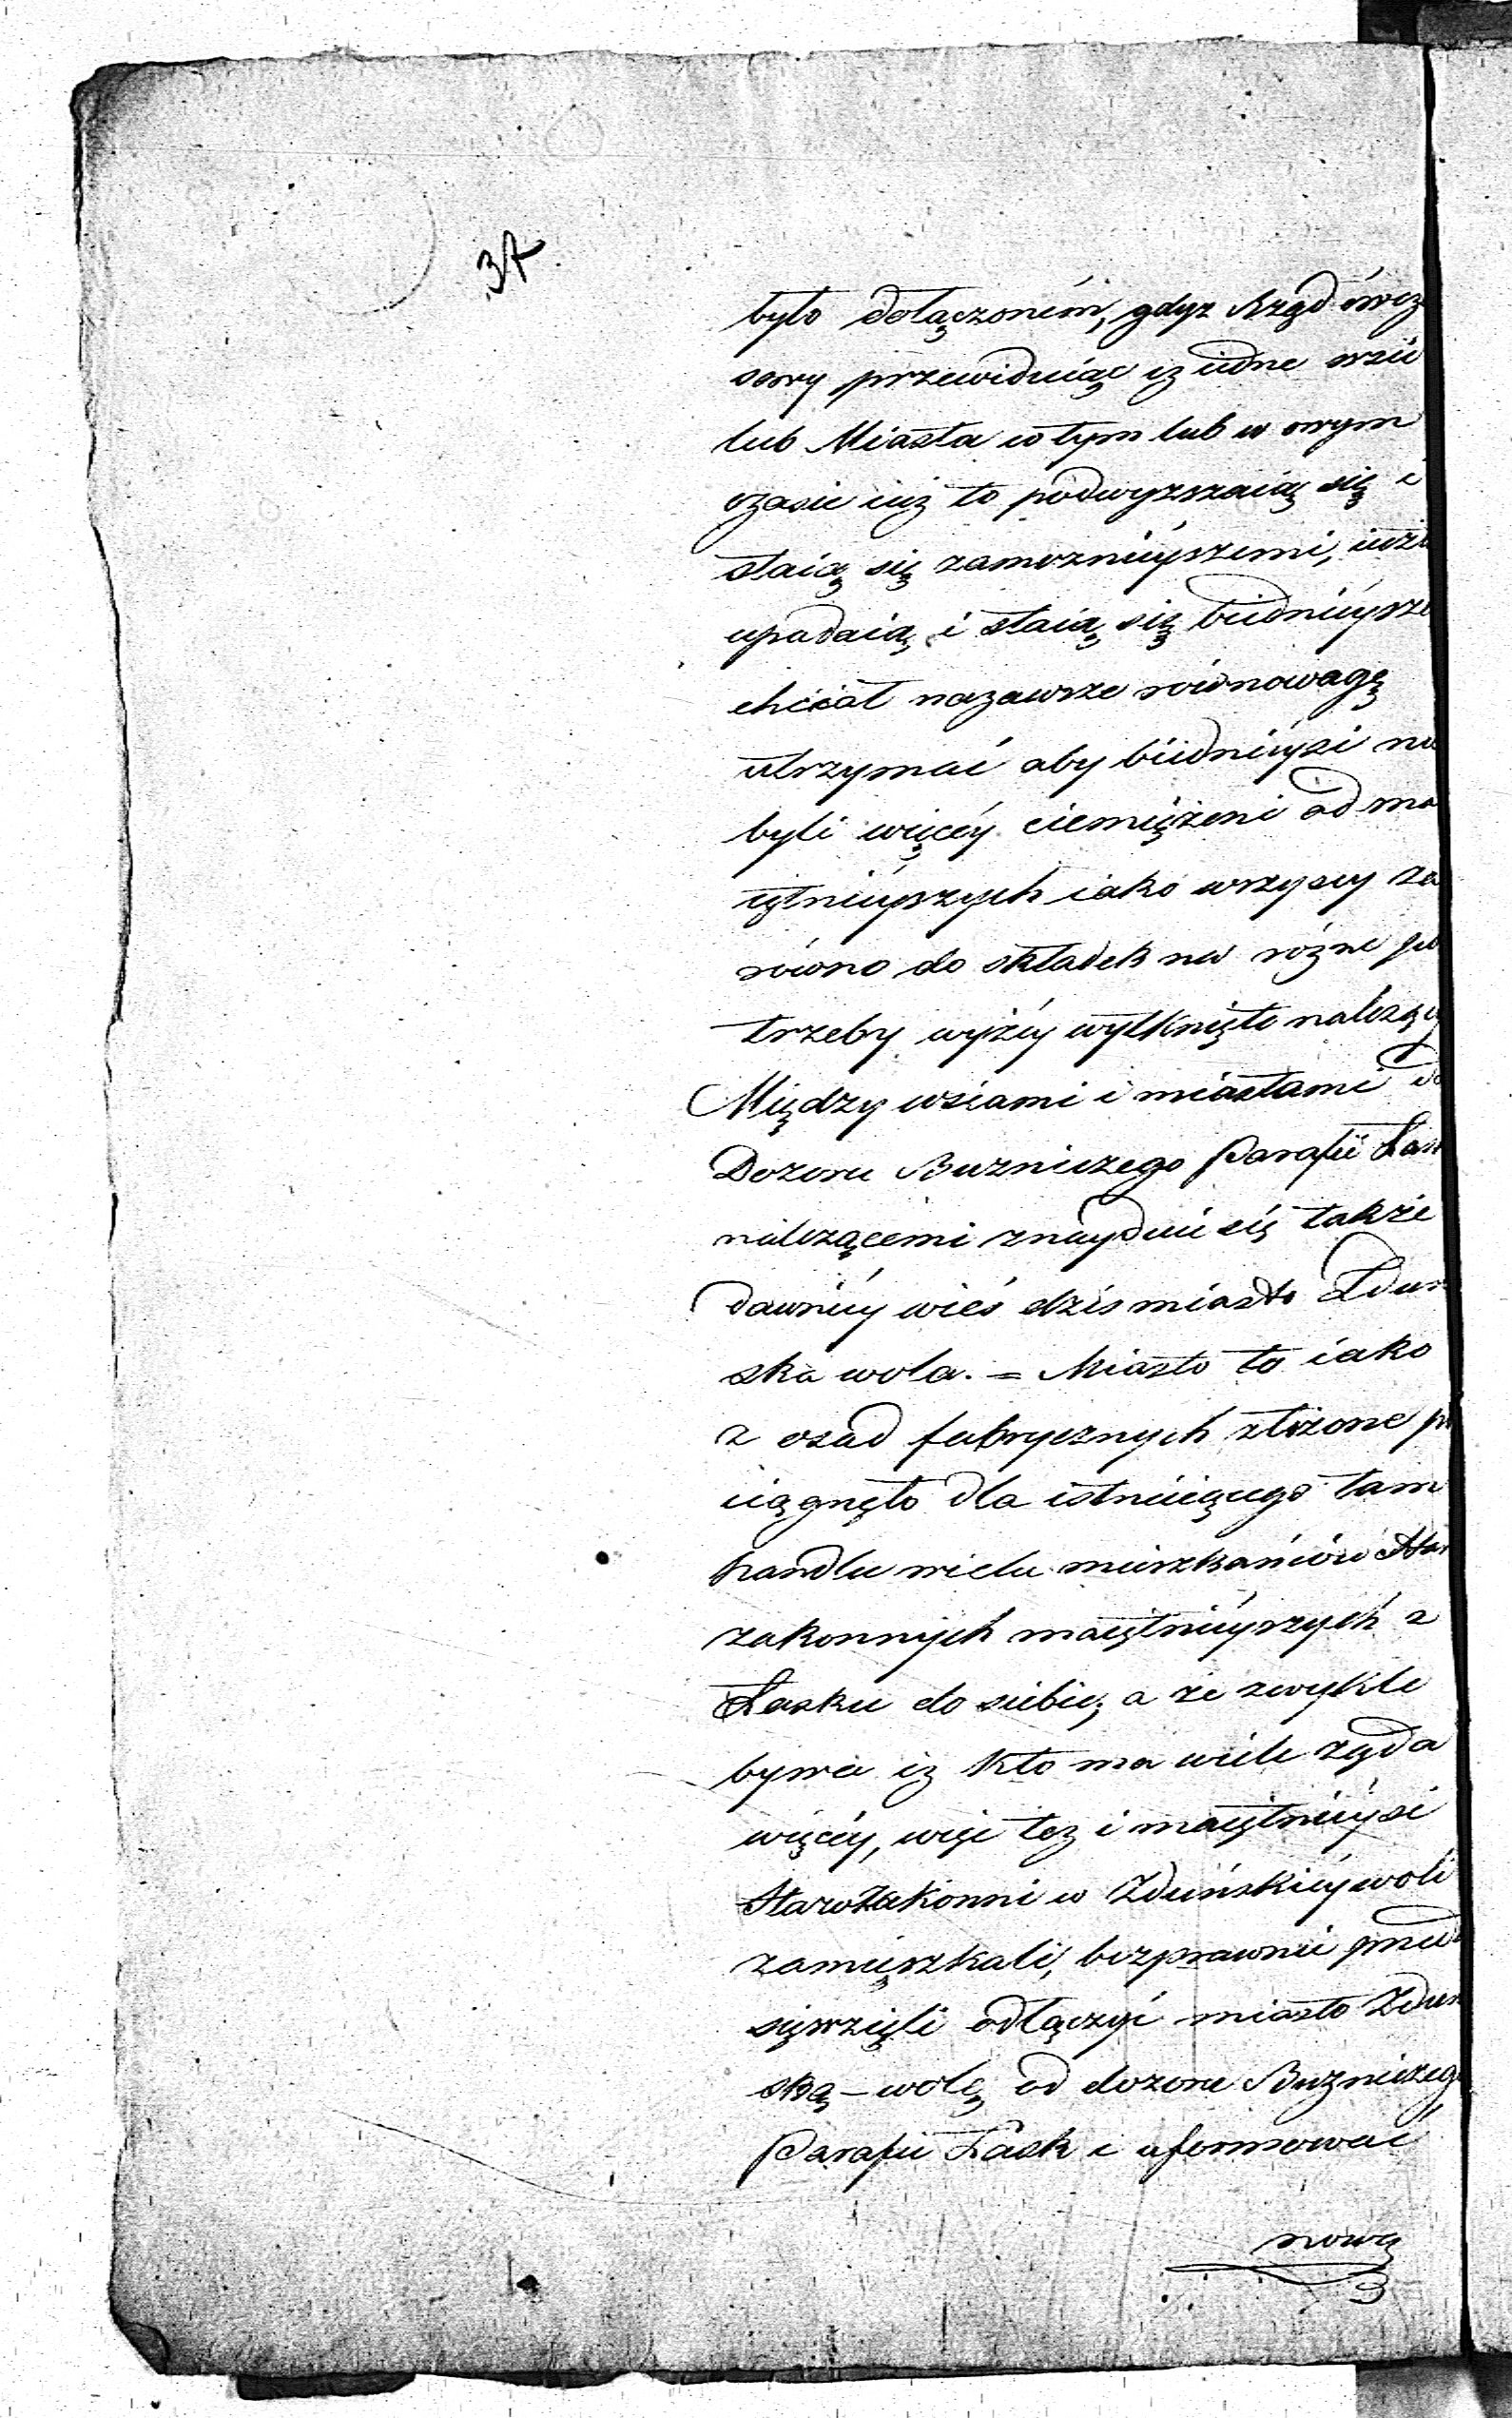 37
było dołączoném, gdyz Rząd ówcze
sowy przewiduiąc iz iedne wsie
lub Miasta w tym lub w owym
czasie iuż to podwyzszaią się i
staią się zamoznieyszemi, iuż
upadaią i staią się biednieysze
chciał nazawsze równowagę
utrzymać aby biednieysi nie
byli więcéy ciemiężeni od ma
iętnieyszych iako wszyscy za
równo do składek na rózne po
trzeby wyżéy wytknięte należący
Między wsiami i miastami do
Dozoru Buzniczego Parafii Łask
należącemi znayduie się także
dawniéy wieś dziś miasto Zduń
ska wola. = Miasto to iako
z osad fabrycznych złożone po
ciągnęło dla istnieiącego tam
handlu wielu mieszkańców Star
zakonnych maiętnieyszych z
Łasku do siebie; a że zwykle
bywa iz kto ma wiele ząda
więcéy, więc tez i maiętnieysi
Starozakonni w Zduńskiéy woli
zamięszkali, bezprawnie przed
sięwzięli odłączyć miasto Zduń
ską-wolę od dozoru Buzniczego
Parafii Łask i uformować
nową